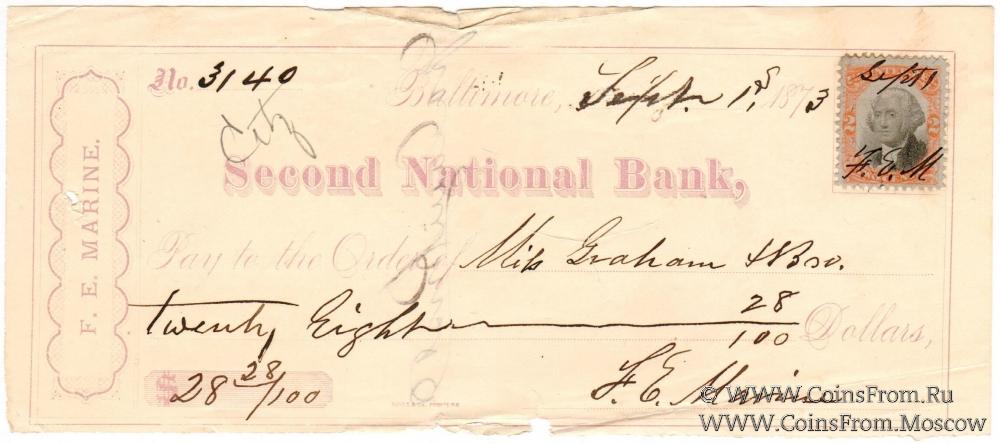 No. 3140
Baltimore, Sept. 1st, 1873
Sept 1
F. E. M
City
Second National Bank,
F. E. MARINE.
Pay to the Order of Graham & Bro.
twenty Eight 28/100 Dollars,
$ 28 28/100
F. E. Marine
© WWW.CoinsFrom.Ru
WWW.CoinsFrom.Moscow